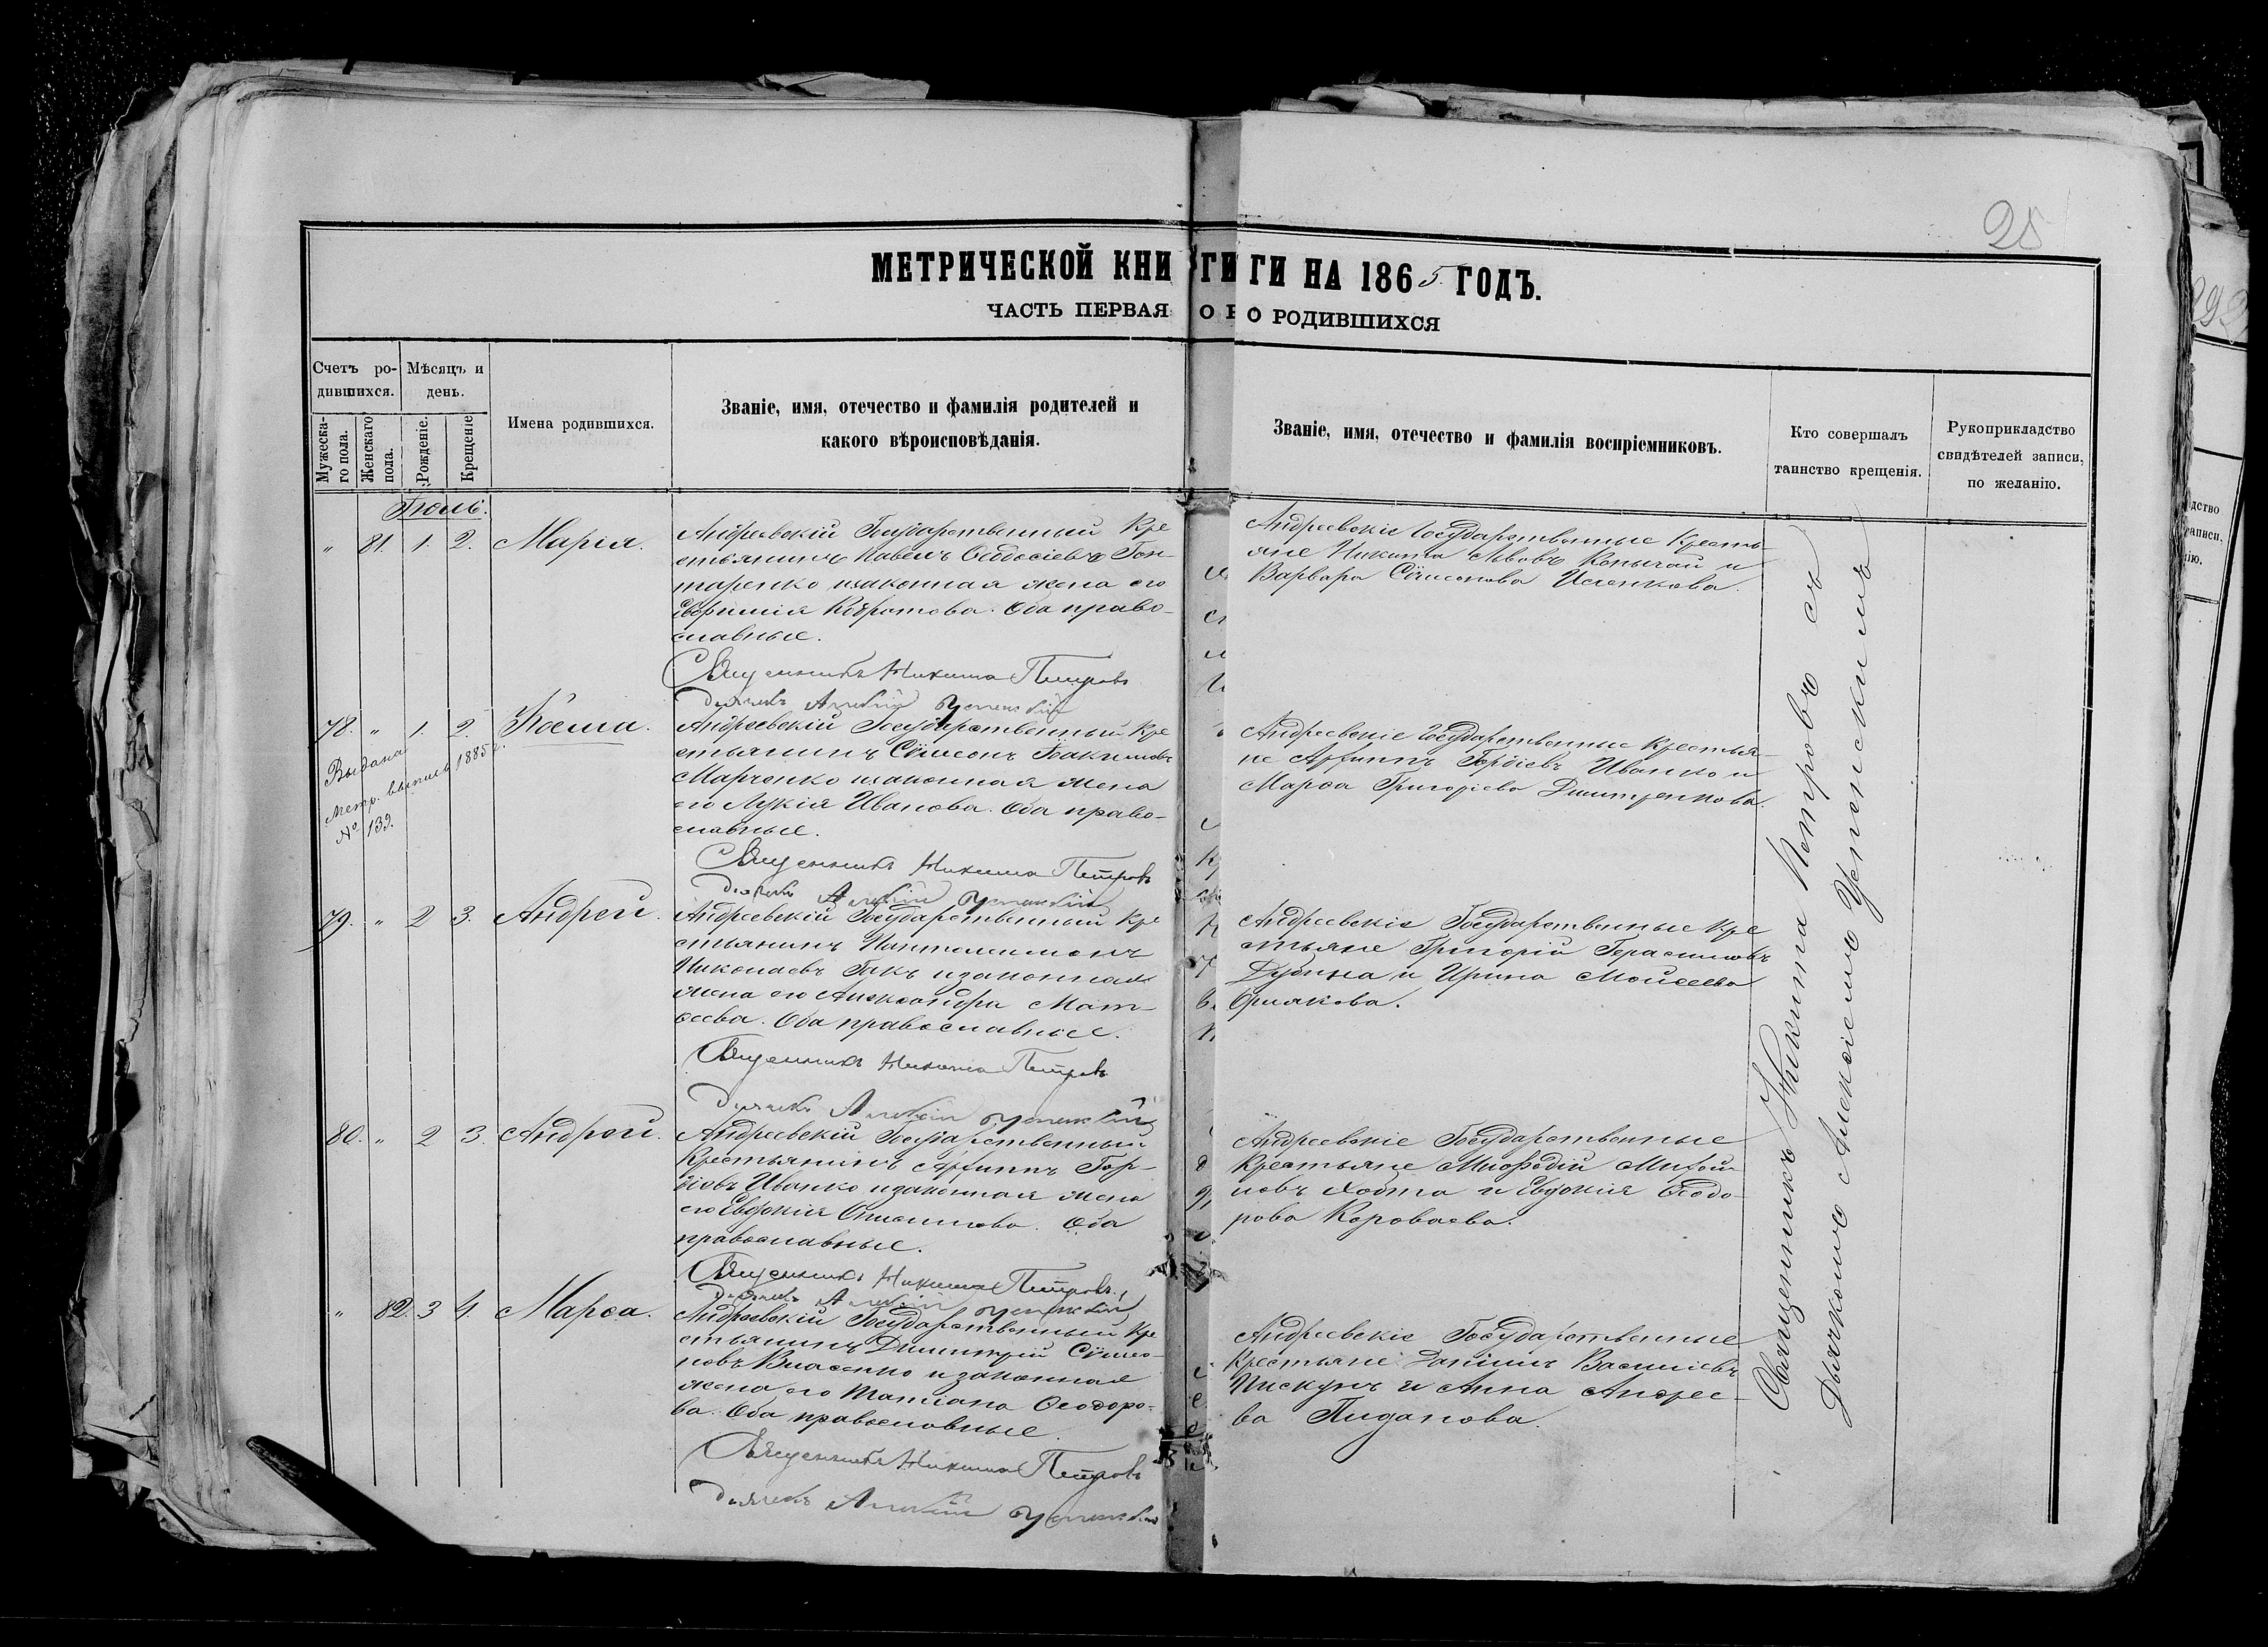 25
МЕТРИЧЕСКОЙ КНИ ГИ ГИ НА 1865 ГОДЪ.
ЧАСТЬ ПЕРВАЯ О О РОДИВШИХСЯ
Счетъ ро-
дившихся.
Мѣсяцъ и
день.
Мужеска-
го пола.
Женскаго
пола.
Рожденіе.
Крещеніе
Имена родившихся.
Званіе, имя, отечество и фамилія родителей и
какого вѣроисповѣданія.
Званіе, имя, отечество и фамилія воспріемниковъ.
Кто совершалъ
таинство крещенія.
Рукоприкладство
свидѣтелей записи,
по желанію.
Іюль.
" 81. 1. 2. Марія.
Андреевскій Государственный Кре
стьянинъ Павелъ Ѳеодосіевъ Гон-
таренко изаконная жена его
Евфимія Кодратова. Оба право-
славные.
Священникъ Никита Петровъ
Дьячекъ Алексій Успенскій
Андреевскіе Государственные Кресть-
яне Никита Львовъ Копычай и
Варвара Сѵмеонова
78. " 1. 2. Косма.
Выдана
метр. выпись 1885 г.
№ 139.
Андреевскій Государственный Кре
стьянинъ Сѵмеонъ Іоакимовъ
Марченко изаконная жена
его Лукія Иванова. Оба право-
славные.
Священникъ Никита Петровъ
Дьячекъ Алексій Успенскій
Андреевскіе Государственные Крестья-
не Аффипъ Гордіевъ Иванко и
Марѳа Григоріева Дмитренкова.
79. " 2 3. Андрей.
Андреевскій Государственный Кре
стьянинъ Пантелеимонъ
Николаевъ Гакъ изаконная
жена его Александра Мат-
ѳеева. Оба православные.
Священникъ Никита Петровъ
Дьячекъ Алексій Успенскій
Андреевскіе Государственные Кре
стьяне Григорій Герасимовъ
Дубина и Ирина Моисеева
Орлякова.
80. " 2 3. Андрей.
Андреевскій Государственный
Крестьянинъ Аффипъ Гор-
діевъ Иванко изаконная жена
его Евдокія Онисимова. Оба
православные.
Священникъ Никита Петровъ
Дьячекъ Алексій Успенскій
Андреевскіе Государственные
Крестьяне Меѳодій
новъ и Евдокія Ѳеодо-
рова Короваева.
" 82. 3 4. Марѳа.
Андреевскій Государственный Кре
стьянинъ Димитрій Сѵмео-
новъ Власенко изаконная
жена его Татіана Ѳеодоро-
ва. Оба православные.
Священникъ Никита Петровъ
Дьячекъ Алексій Успенскій
Андреевскіе Государственные
Крестьяне Даніилъ Василіевъ
Пискунъ и Анна Андрее-
ва Пиданова.
Священникъ Никита Петровъ съ
Дьячкомъ Алексіемъ Успенскимъ